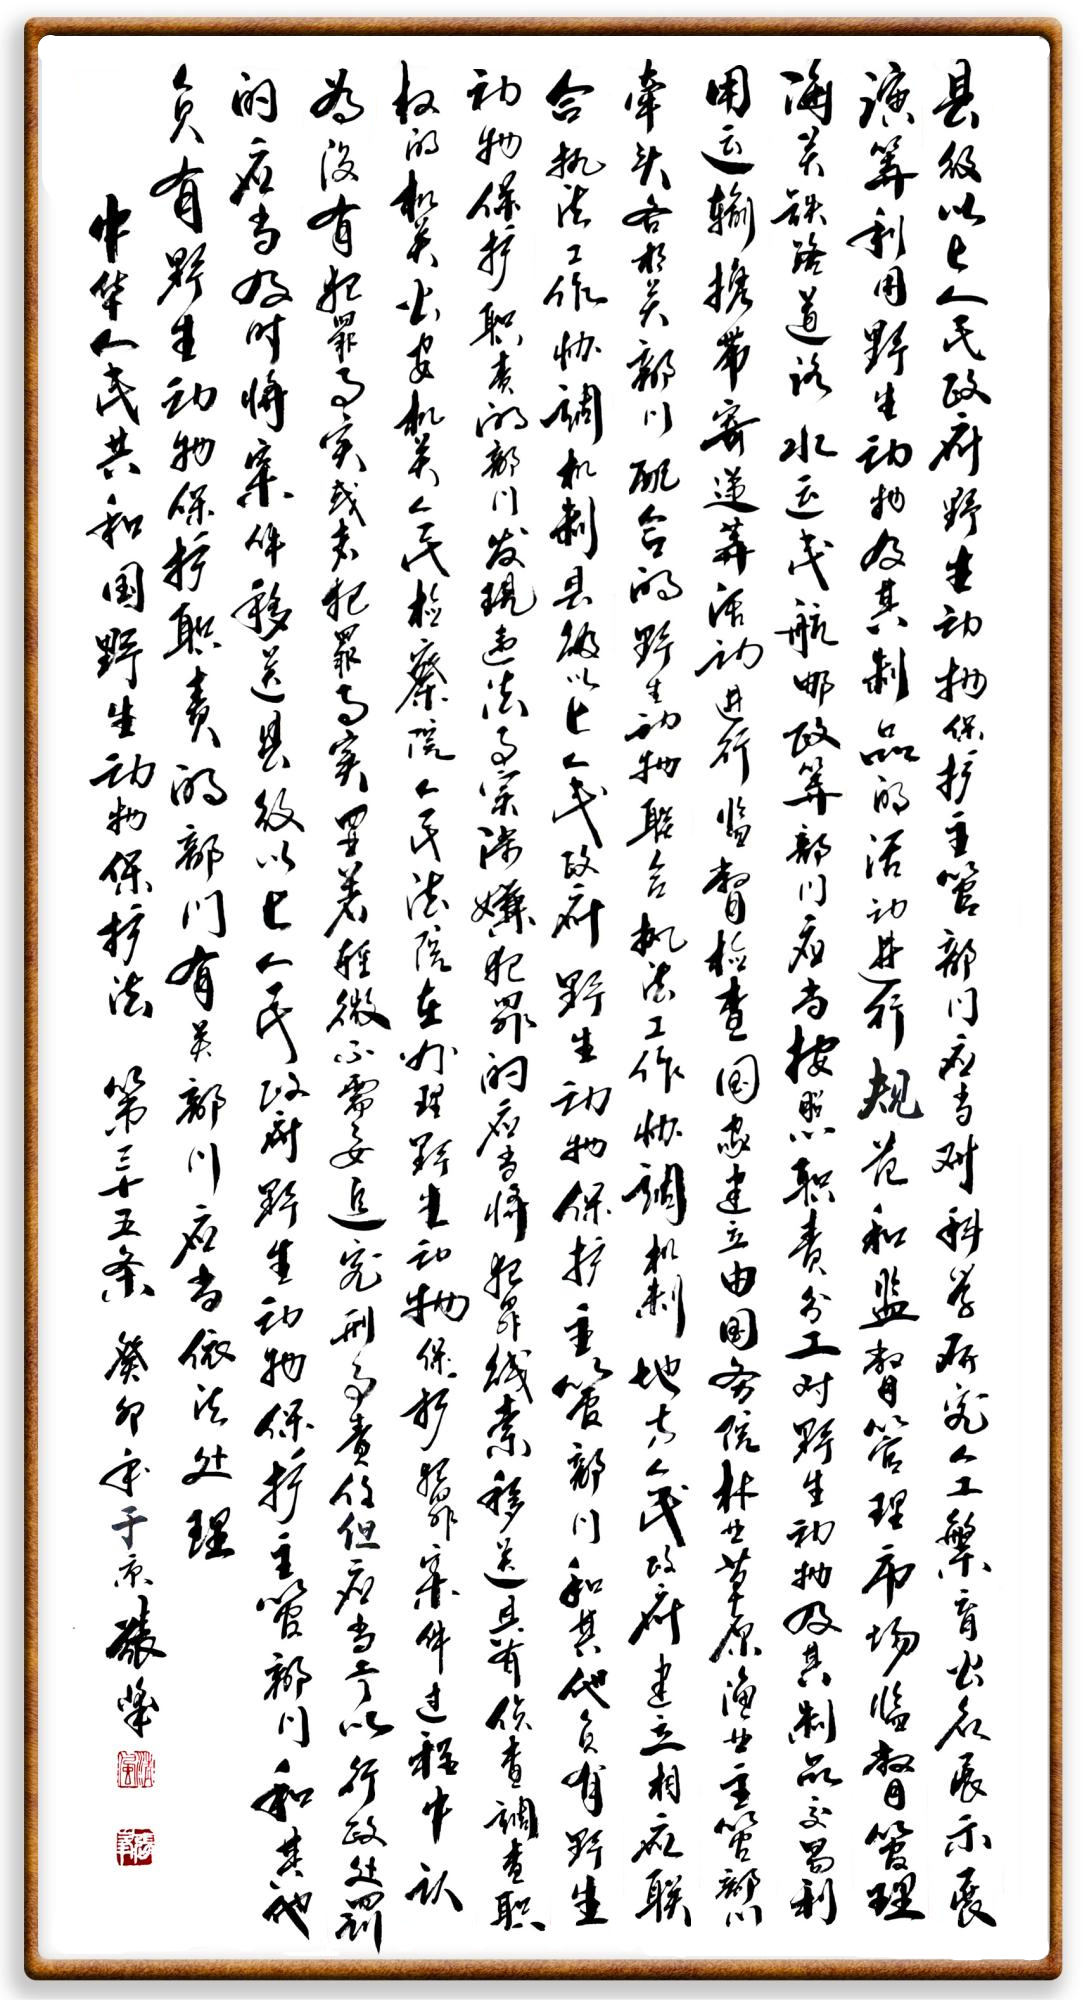 县级以上人民政府野生动物保护主管部门应当对科学研究人工繁育公众展示展
演等利用野生动物及其制品的活动进行规范和监督管理市场监督管理
海关铁路道路水运民航邮政等部门应当按照职责分工对野生动物及其制品交易利
用运输携带寄递等活动进行监督检查国家建立由国务院林业草原渔业主管部门
牵头各相关部门配合的野生动物联合执法工作协调机制地方人民政府建立相应联
合执法工作协调机制县级以上人民政府野生动物保护主管部门和其他负有野生
动物保护职责的部门发现违法事实涉嫌犯罪的应当将犯罪线索移送具有侦查调查职
权的机关公安机关人民检察院人民法院在办理野生动物保护犯罪案件过程中认
为没有犯罪事实或者犯罪事实显著轻微不需要追究刑事责任但应当予以行政处罚
的应当及时将案件移送县级以上人民政府野生动物保护主管部门和其他
负有野生动物保护职责的部门有关部门应当依法处理
中华人民共和国野生动物保护法 第三十五条 癸卯年于京 张峰